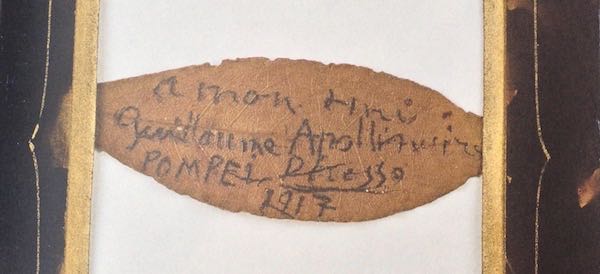 a mon ami
Guillaume Apollinaire
POMPEI Picasso
1917